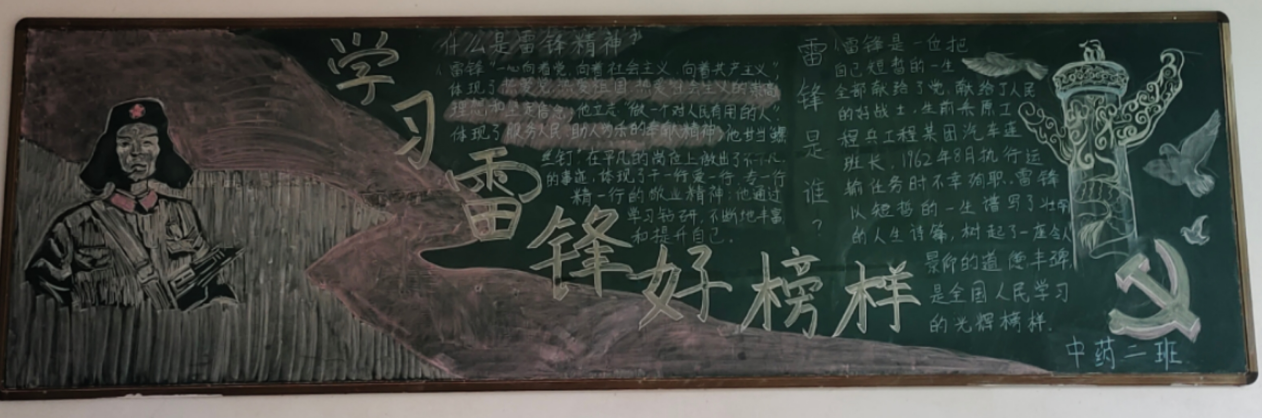 学习雷锋好榜样
什么是雷锋精神
雷锋“一心向着党,向着社会主义,向着共产主义”,
体现了热爱党、热爱祖国、热爱社会主义的崇高
理想和坚定信念;他立志“做一个对人民有用的人”,
体现了服务人民、助人为乐的奉献精神;他甘当螺
丝钉,在平凡的岗位上做出了不平凡
的事迹,体现了干一行爱一行、专一行
精一行的敬业精神;他通过
学习钻研,不断地丰富
和提升自己。
雷锋是谁?
雷锋是一位把
自己短暂的一生
全部献给了党、献给了人民
的好战士,生前系原工
程兵工程某团汽车连
班长,1962年8月执行运
输任务时不幸殉职。雷锋
以短暂的一生谱写了壮丽
的人生诗篇,树起了一座令人
景仰的道德丰碑,
是全国人民学习
的光辉榜样。
中药二班